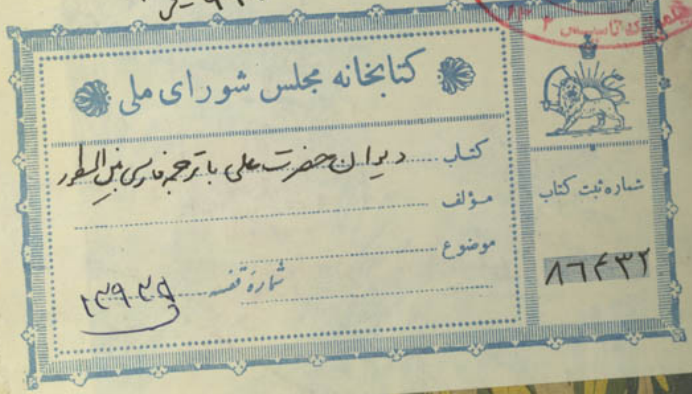 کتابخانه مجلس شورای ملی
کتاب دیوان حضرت علی با ترجمه فارسی بین السطور
مؤلف
موضوع
شماره قفسه ۱۳۹۳۹
شماره ثبت کتاب
۸۶۴۳۲